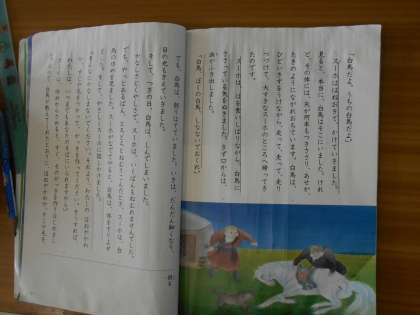 「白馬だよ。うちの白馬だよ。」
スーホははねおきて、かけていきました。
見ると、本当に、白馬はそこにいました。けれ
ど、その体には、矢が何本もつきささり、あせが、
たきのようにながれおちています。白馬は、
ひどいきずをうけながら、走って、走って、走り
つづけて、大すきなスーホのところへ帰ってき
たのです。
スーホは、はを食いしばりながら、白馬に
ささっている矢をぬきました。きず口からは、
血がふき出しました。
「白馬、ぼくの白馬、しなないでおくれ。」
でも、白馬は、弱りはてていました。いきは、だんだん細くなり、
目の光もきえていきました。
そして、つぎの日、白馬は、しんでしまいました。
かなしさとくやしさで、スーホは、いくばんもねむれませんでした。
でも、やっとあるばん、とろとろとねむりこんだとき、スーホは、白
馬のゆめを見ました。スーホがなでてやると、白馬は、体をすりよ